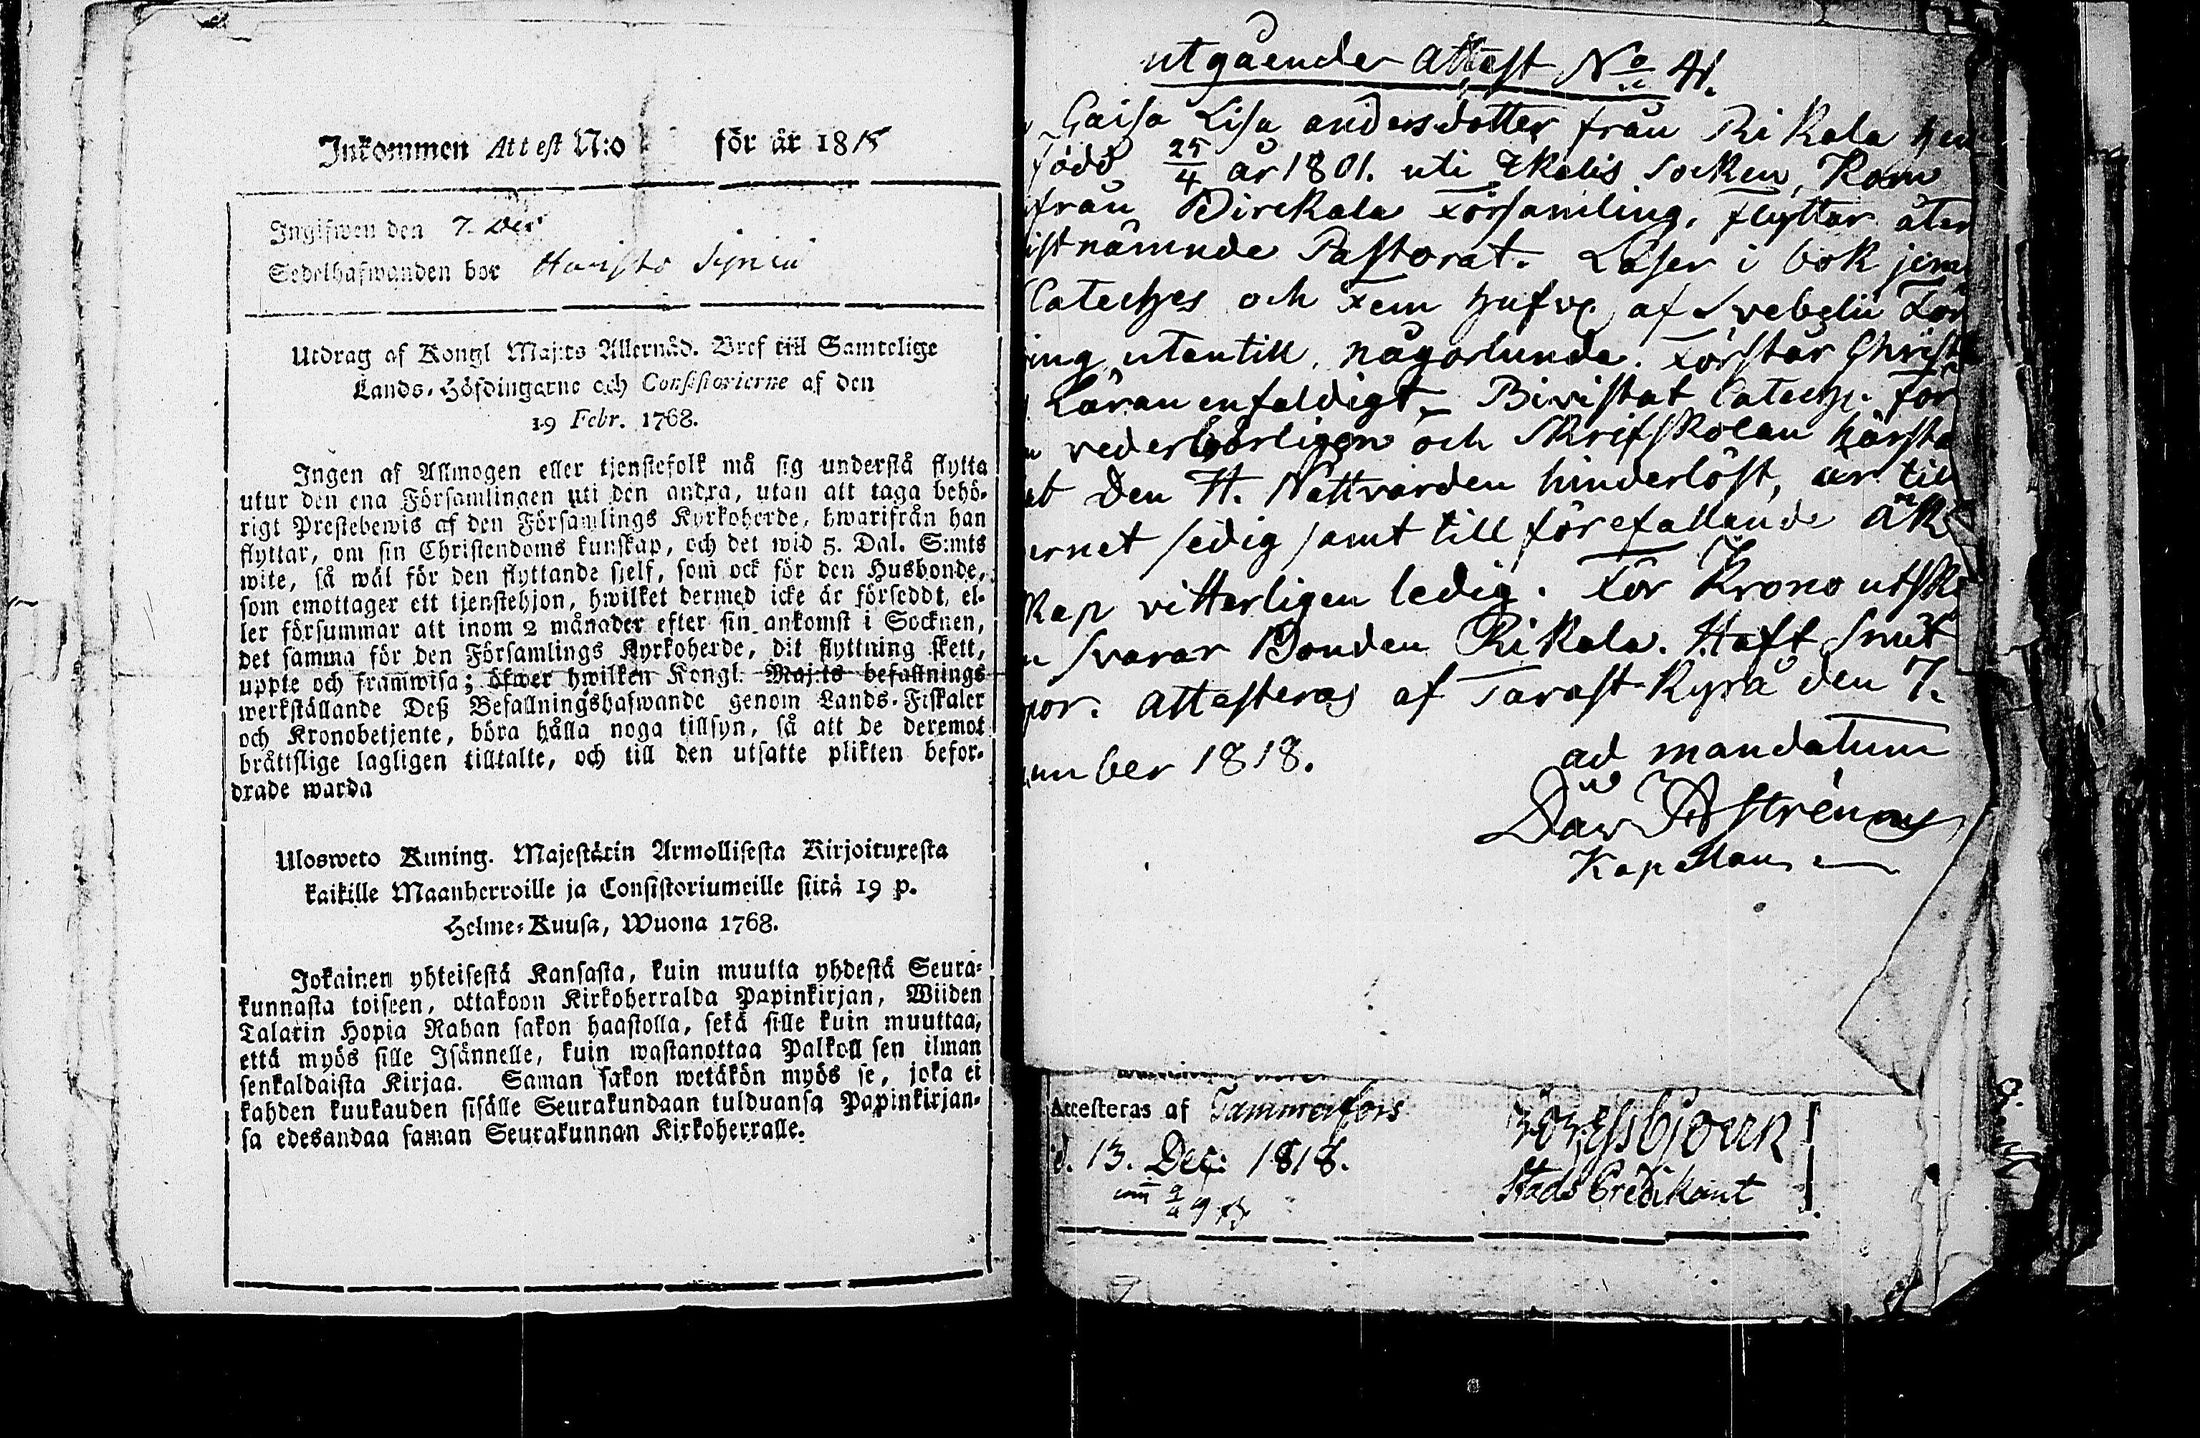 Inkommen Attest N:o för år 1818
Ingifwen den 7. Dec
Sedelhafwanden bor
Utdrag af Kongl Maj:ts Allernåd. Bref till Samtelige
Lands-Höfdingarne och Consistorierne af den
19 Febr. 1768.
Ingen af Allmogen eller tjenstefolk må sig understå flytta
utur den ena Församlingen uti den andra, utan att taga behö-
rigt Prestebewis af den Församlings Kyrkoherde, hwarifrån han
flyttar, om sin Christendoms kunskap, och det wid 5. Dal. S:mts
wite, så wäl för den flyttande sjelf, som ock för den Husbonde,
som emottager ett tjenstehjon, hwilket dermed icke är försedt, el-
ler försummar att inom 2 månader efter sin ankomst i Socknen,
det samma för den Församlings Kyrkoherde, dit flyttning skett,
uppte och framwisa; öfwer hwilken Kongl. Maj:ts befallnings
werkställande Deß Befallningshafwande genom Lands-Fiskaler
och Kronobetjente, böra hålla noga tillsyn, så att de deremot
bråttslige lagligen tilltalte, och till den utsatte plikten befor-
drade warda
Ulosweto Kuning. Majestätin Armollisesta Kirjoituxesta
kaikille Maanherroille ja Consistoriumeille siitä 19 p.
Helme-Kuusa, Wuona 1768.
Jokainen yhteisestä Kansasta, kuin muutta yhdestä Seura-
kunnasta toiseen, ottakoon Kirkoherralda Papinkirjan, Wiiden
Talarin Hopia Rahan sakon haastolla, sekä sille kuin muuttaa,
että myös sille Isännelle, kuin wastanottaa Palkollisen ilman
senkaldaista Kirjaa. Saman sakon wetäkön myös se, joka ei
kahden kuukauden sisälle Seurakundaan tulduansa Papinkirjan-
sa edesandaa saman Seurakunnan Kirkoherralle.
utgåender Attest No 41.
Gaisa Lisa andersdotter från Rikala
född 25/4 år 1801. uti Ekelis Socken, Kom
från Birckala Församling, flyttar åter
istnämnde Pastorat. Läser i bok jem
Cateches och Fem Hufvc af Svebelii För
ing utantill, någorlunda. Förstår Christ
Läran enfaldigt. Bivistat Catech. För
vederbörligen och Skrifskolan
Den H. Nattvarden hinderlöst, är till
ernet sedig samt till förefallande äkt
kap vitterligen ledig. För Krono utsky
svarar Bonden Rikala. Haft
por. Attesteras af Tavast Kyrå den 7.
mber 1818. ad mandatum
Dav Astrénius
Kapellan
Attesteras af Tammerfors
d. 13. Dec: 1818.
Stads Predikant